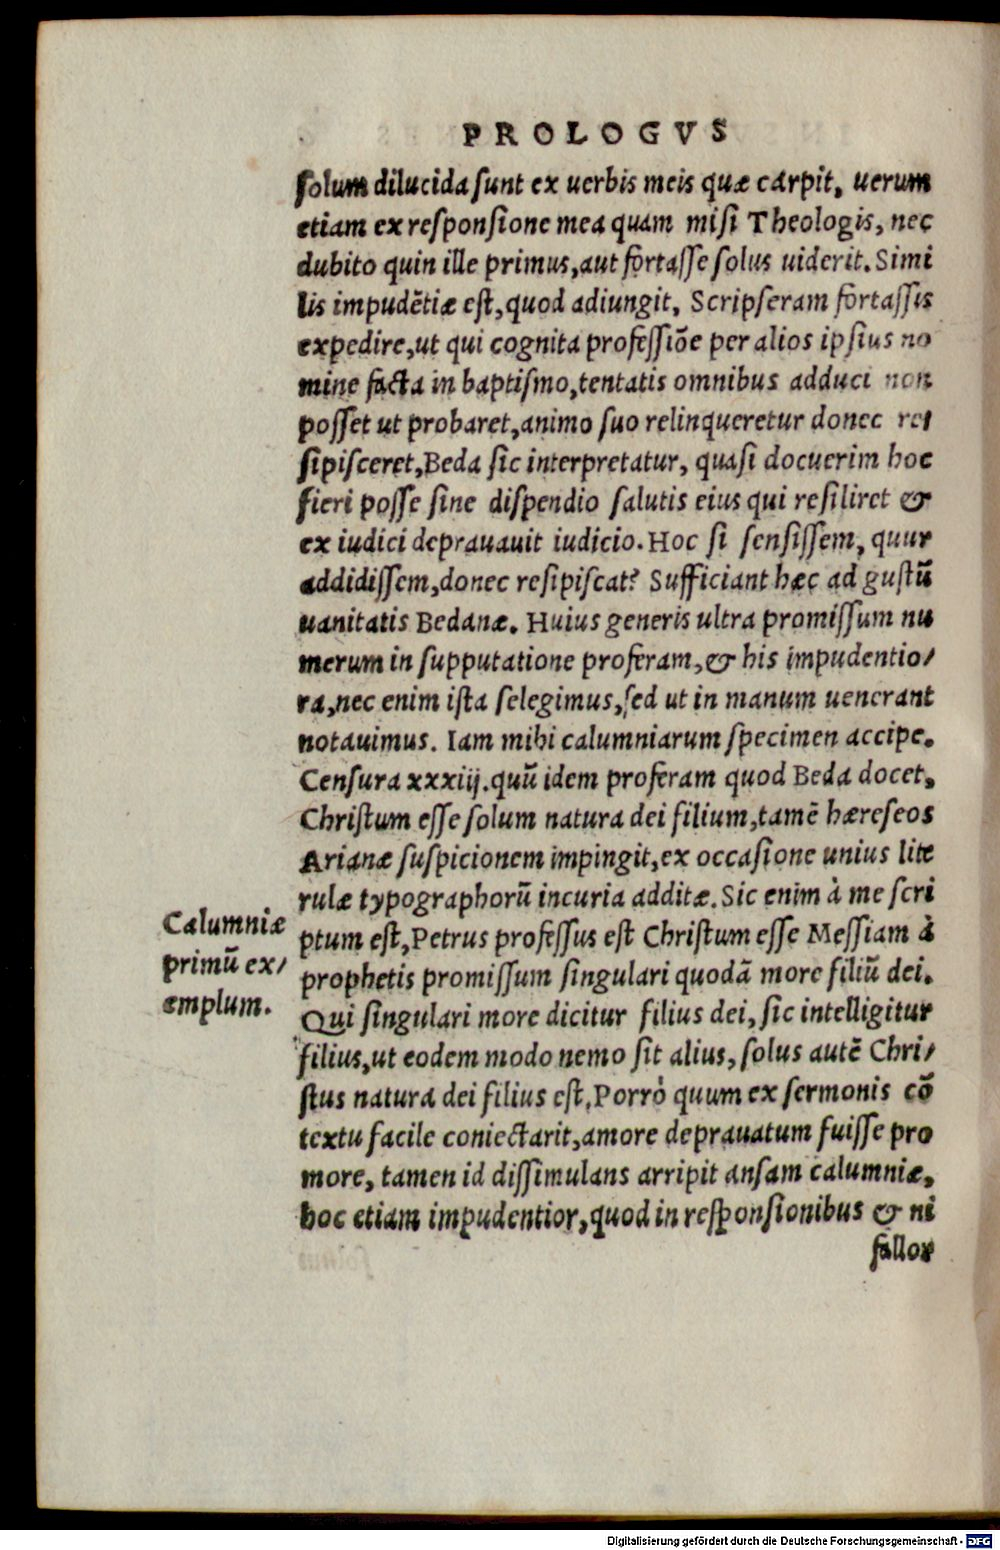 PROLOGVS
ſolum dilucida ſunt ex uerbis meis quæ carpit, uerum
etiam ex reſponſione mea quam miſi Theologis, nec
dubito quin ille primus, aut fortaſſe ſolus uiderit. Simi
lis impudẽtiæ eſt, quod adiungit, Scripſeram fortaſſis
expedire, ut qui cognita profeſſiõe per alios ipſius no
mine facta in baptiſmo, tentatis omnibus adduci non
poſſet ut probaret, animo ſuo relinqueretur donec re⸗
ſipiſceret, Beda ſic interpretatur, quaſi docuerim hoc
fieri poſſe ſine diſpendio ſalutis eius qui reſiliret &
ex iudici deprauauit iudicio. Hoc ſi ſenſiſſem, quur
addidiſſem, donec reſipiſcat? Sufficiant hæc ad guſtũ
uanitatis Bedanæ. Huius generis ultra promiſſum nu
merum in ſupputatione proferam, & his impudentio/
ra, nec enim iſta ſelegimus, ſed ut in manum uenerant
notauimus. Iam mihi calumniarum ſpecimen accipe.
Cenſura xxxiij. quũ idem proferam quod Beda docet,
Chriſtum eſſe ſolum natura dei filium, tamẽ hæreſeos
Arianæ ſuſpicionem impingit, ex occaſione unius lite
rulæ typographorũ incuria additæ. Sic enim à me ſcri
ptum eſt, Petrus profeſſus eſt Chriſtum eſſe Meſſiam à
prophetis promiſſum ſingulari quodã more filiũ dei.
Qui ſingulari more dicitur filius dei, ſic intelligitur
filius, ut eodem modo nemo ſit alius, ſolus autẽ Chri/
ſtus natura dei filius eſt, Porrò quum ex ſermonis cõ
textu facile coniectarit, amore deprauatum fuiſſe pro
more, tamen id diſſimulans arripit anſam calumniæ,
hoc etiam impudentior, quod in reſponſionibus & ni
fallor
Calumniæ
primũ ex/
emplum.
Digitalisierung gefördert durch die Deutsche Forschungsgemeinschaft - DFG